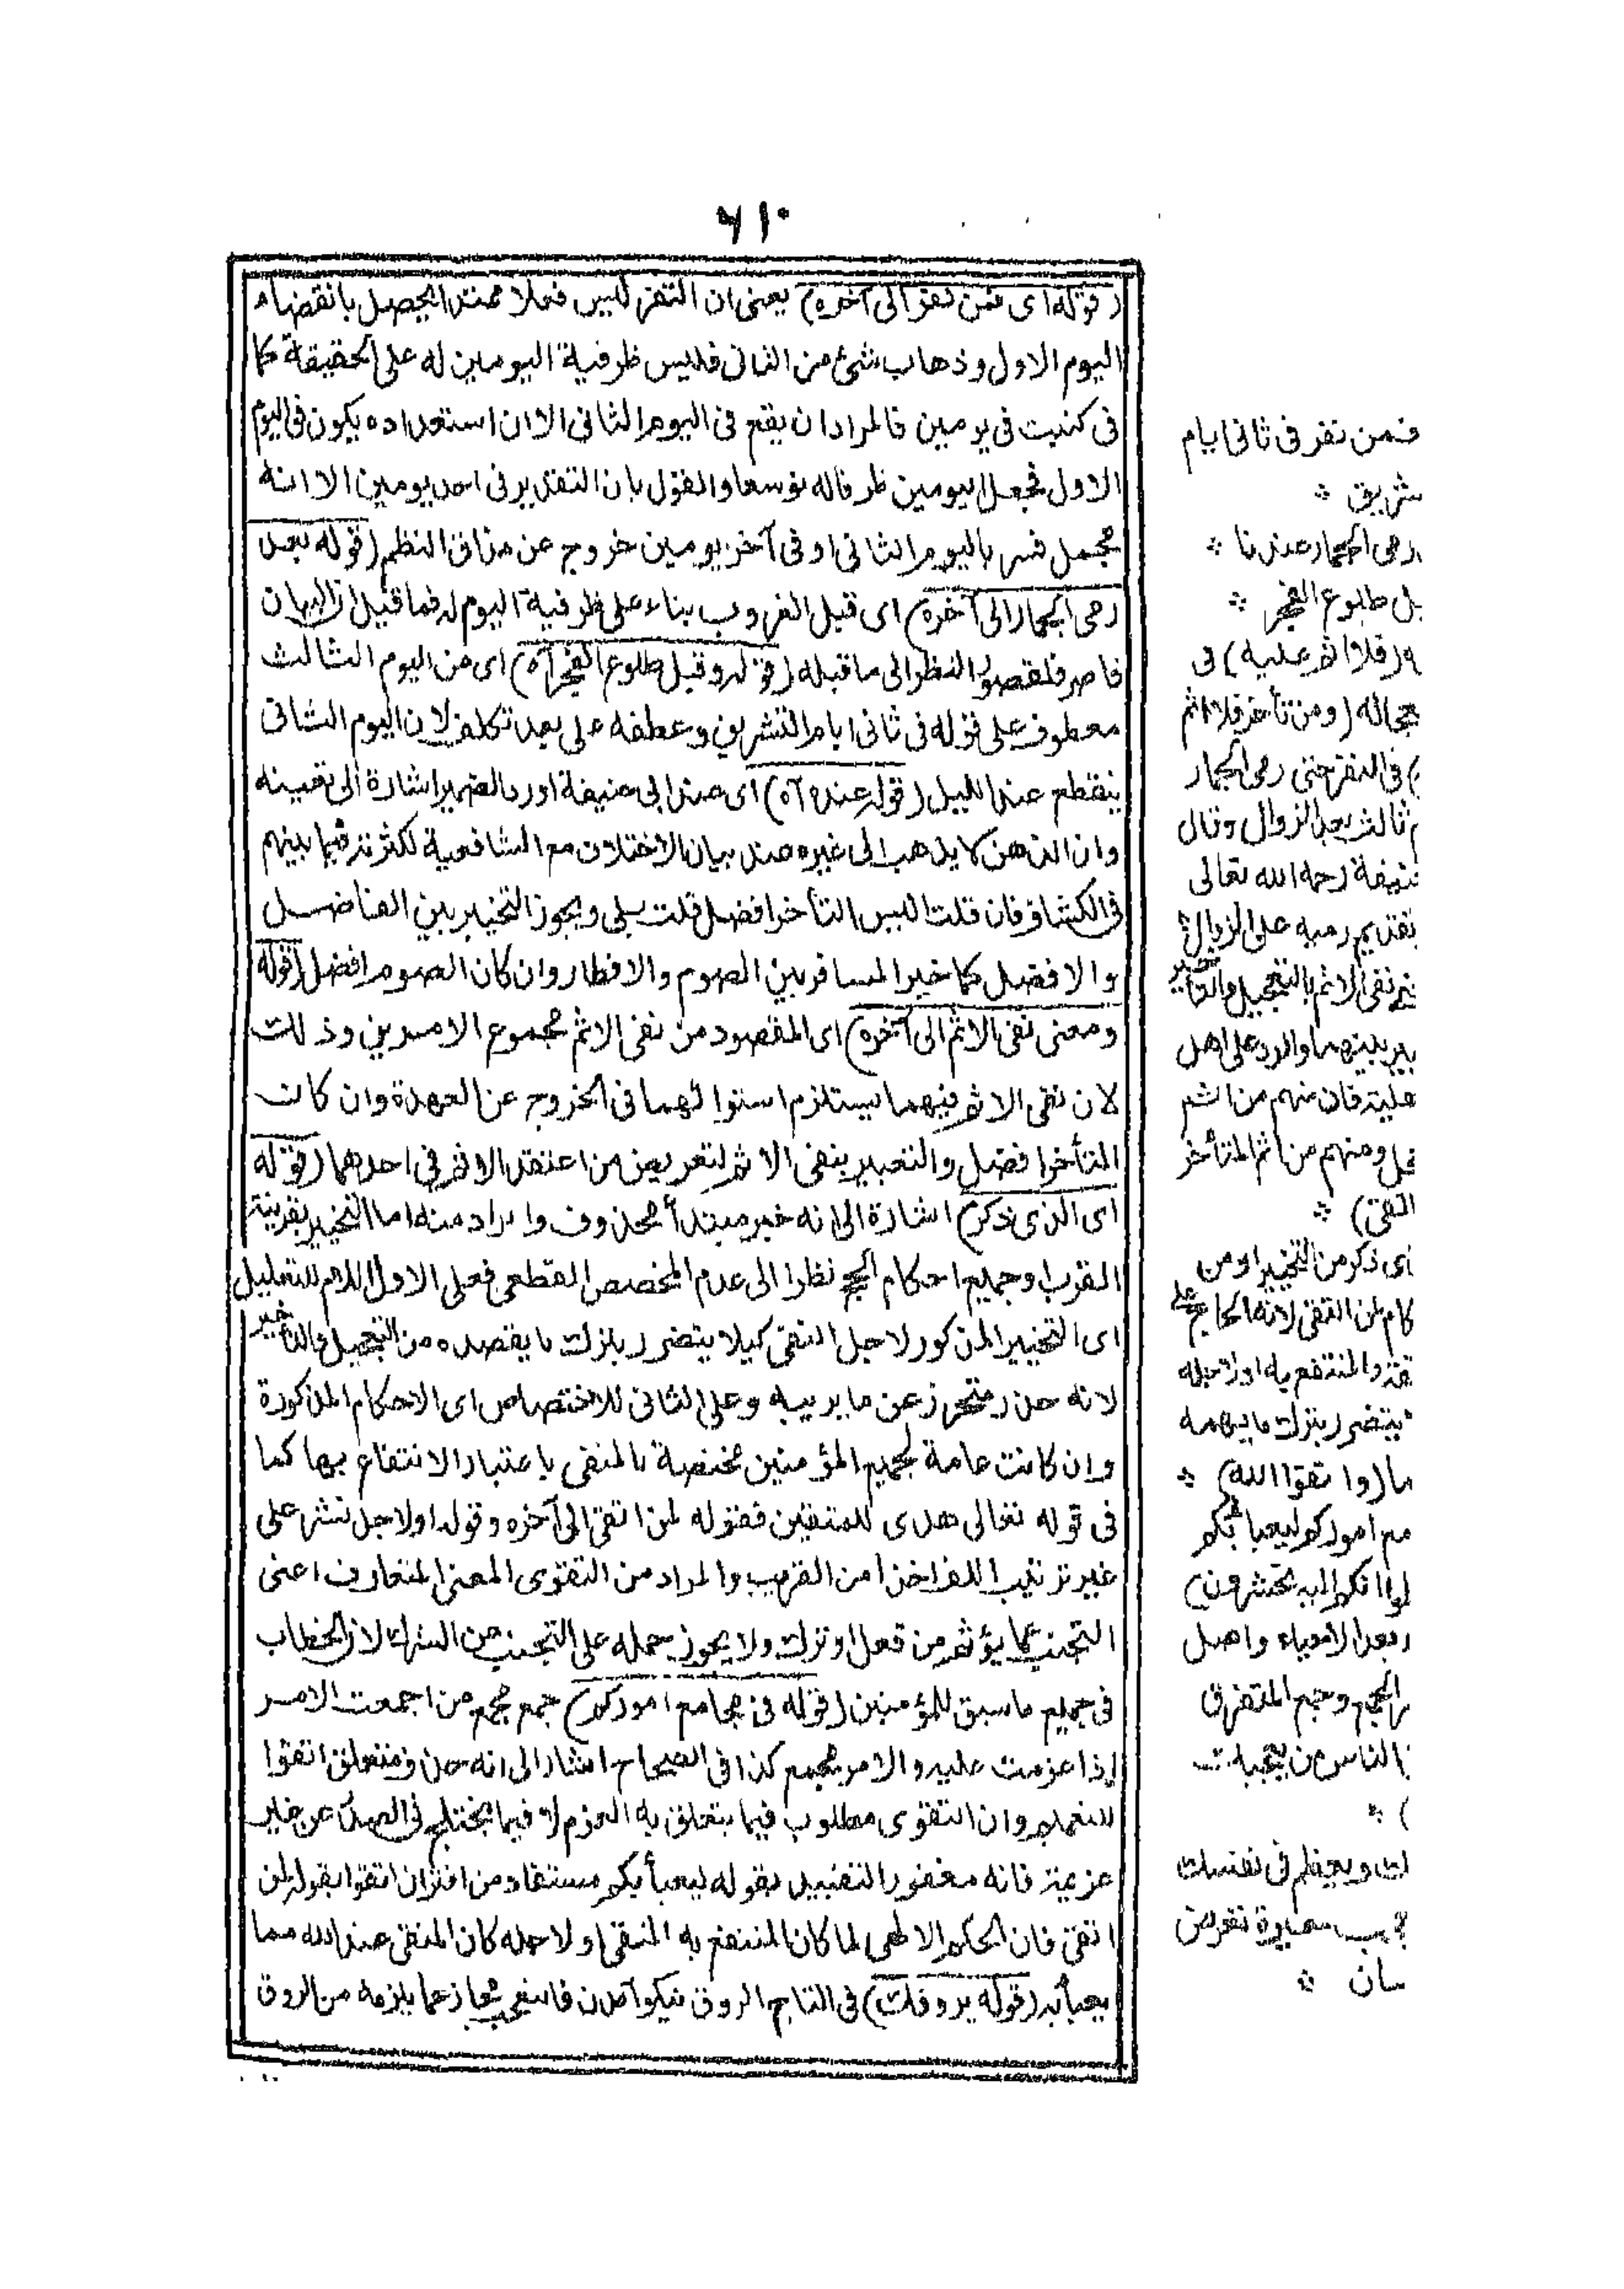 ٦١٠
(قوله اى فمن نفر الى آخره) يعنى ان النفر ليس فعلا ممتدا يحصل بانقضاء
اليوم الاول وذهاب شئ من الثانى فليس ظرفية اليومين له على الحقيقة كما
فى كتبت فى يومين فالمراد ان يقع فى اليوم الثانى الا ان استعداده يكون فى اليوم
الاول فجعل اليومين ظرفا له توسعا والقول بان التقدير فى احد يومين الا انه
مجمل فسر باليوم الثانى او فى آخر يومين خروج عن مذاق النظم (قوله بعد
رمى الجمار الى آخره) اى قبل الغروب بناء على ظرفية اليوم له فما قيل ان البيان
قاصر فلقصور النظر الى ما قبله (قوله وقبل طلوع الفجر آه) اى من اليوم الثالث
معطوف على قوله فى ثانى ايام التشريق وعطفه على بعد تكلف لان اليوم الثانى
ينقطع عند الليل (قوله عنده آه) اى عند ابى حنيفة اورد الضمير اشارة الى تعينه
وان الذهن لا يذهب الى غيره عند بيان الاختلاف مع الشافعية لكثرته فيما بينهم
فى الكشاف فان قلت اليس التأخر افضل قلت بلى ويجوز التخيير بين الفاضل
والافضل كما خير المسافر بين الصوم والافطار وان كان الصوم افضل (قوله
ومعنى نفى الاثم الى آخره) اى المقصود من نفى الاثم مجموع الامرين وذلك
لان نفى الاثم فيهما يستلزم استوائهما فى الخروج عن العهدة وان كانت
المتأخر افضل والتعبير بنفى الاثم لتعريض من اعتقد الاثم فى احدهما (قوله
اى الذى ذكر) اشارة الى انه خبر مبتدأ محذوف والمراد منه اما التخيير بقرينة
القرب او جميع احكام الحج نظرا الى عدم المخصص القطعى فعلى الاول اللام للتعليل
اى التخيير المذكور لاجل المتقى كيلا يتضرر بترك ما يقصده من التعجيل والتأخير
لانه حذر متحرز عن ما يريبه وعلى الثانى للاختصاص اى الاحكام المذكورة
وان كانت عامة لجميع المؤمنين مختصة بالمتقى باعتبار الانتفاع بها كما
فى قوله تعالى هدى للمتقين فقوله لمن اتقى الى آخره وقوله او لاجل نشر على
غير ترتيب اللف اخذا من القريب والمراد من التقوى المعنى المتعارف اعنى
التجنب عما يؤثم من فعل او ترك ولا يجوز حمله على التجنب عن الشرك لان الخطاب
فى جميع ما سبق للمؤمنين (قوله فى مجامع اموركم) جمع مجمع من اجمعت الامر
اذا عزمت عليه والامر مجمع كذا فى الصحاح اشار الى انه حذف متعلق اتقوا
للتعميم وان التقوى مطلوب فيما يتعلق به العزم لا فيما يختلج فى الصدر عن غير
عزيمة فانه مغفور التقييد بقوله ليعبأ بكم مستفاد من اقتران اتقوا بقوله لمن
اتقى فان الحكم الالهى لما كان المنتفع به المتقى او لاجله كان المتقى عند الله مما
يعبأ به (قوله يروقك) فى التاج الروق نيكو آمدن فالتعجب مجاز عما يلزمه من الروق
فمن نفر فى ثانى ايام
شريق
رمى الجمار عندنا
بل طلوع الفجر
ه (فلا اثم عليه) فى
عجاله (ومن تأخر فلا اثم
) فى النفر حتى رمى الجمار
م ثالث بعد الزوال وقال
نيفة رحمه الله تعالى
تقديم رميه على الزوال
نفى الاثم بالتعجيل والتأخير
يير بينهما والرد على اهل
هلية فان منهم من اثم
جل ومنهم من اثم المتأخر
اتقى)
ى ذكر من التخيير او من
كام لمن اتقى لانه الحاج على
قة والمنتفع به او لاجله
يتضرر بترك ما يهمه
ما (واتقوا الله)
مع اموركم ليعبا بكم
لموا انكم اليه تحشرون)
ء بعد الاحياء واصل
ر الجمع وضم المتفرق
الناس من يعجبك
)
ك ويعظم فى نفسك
سان